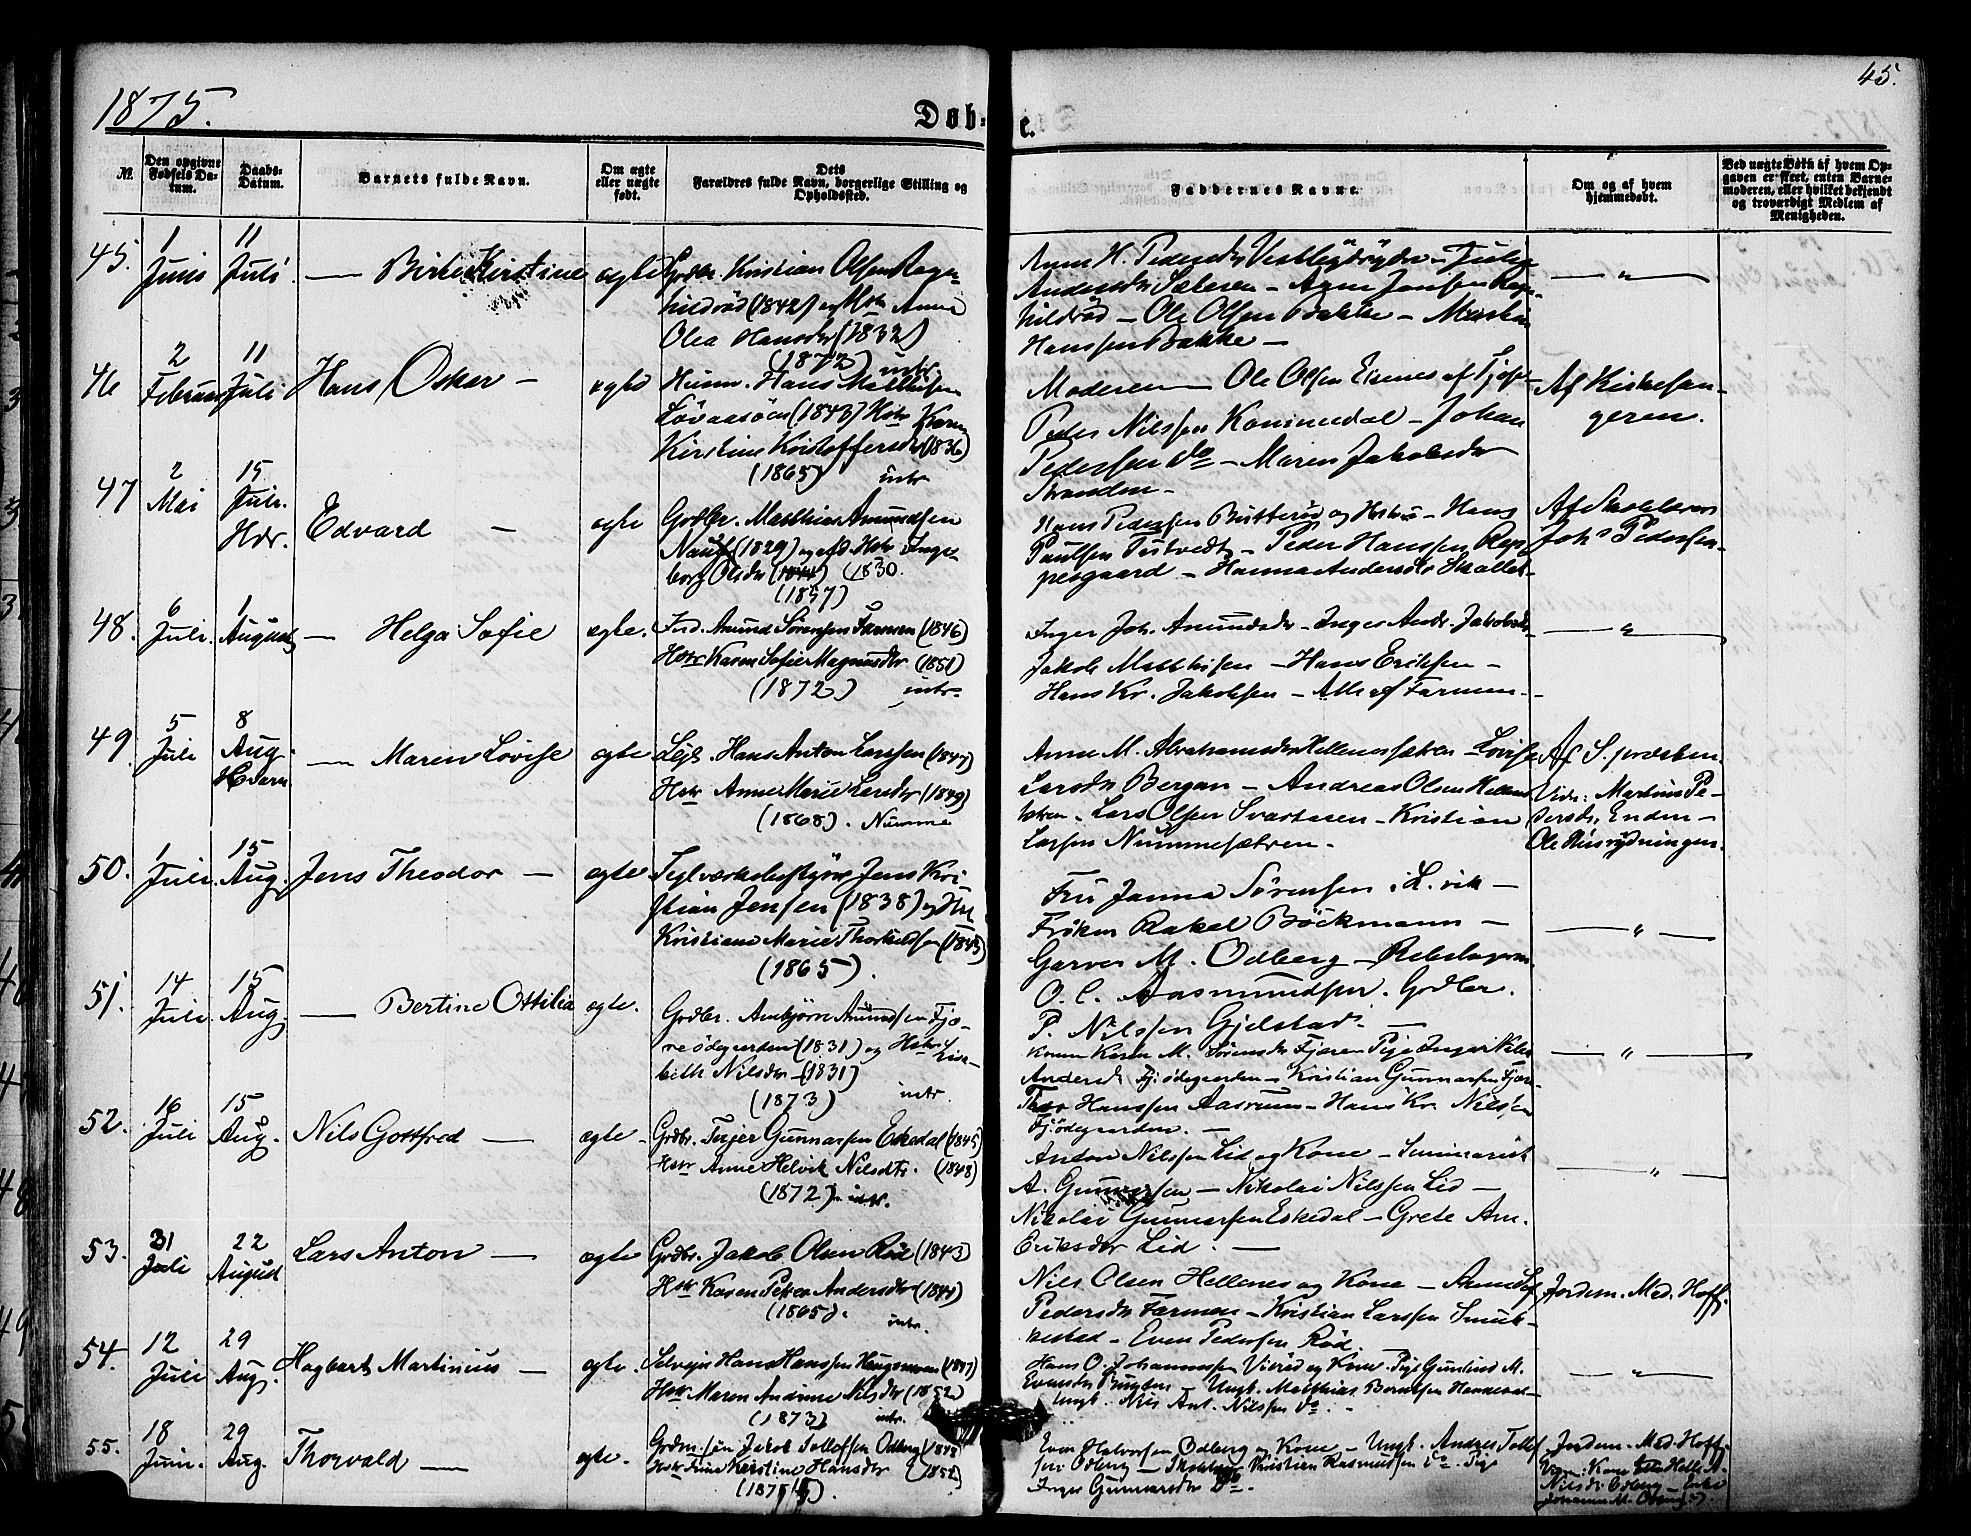 1875.
45.
Døb-
e.
№.
Den opgivne Fødsels Datum.
Daabs-Datum.
Barnets fulde Navn.
Om ægte eller uægte født.
Dets Forældres fulde Navn, borgerlige Stilling og Opholdssted.
Faddernes Navne.
Om og af hvem hjemmedøbt.
Ved uægte Børn af hvem Opgaven er skeet, enten Barnemoderen, eller hvilket bekjendt og troværdigt Medlem af Menigheden.
45. 1 Juni 11 Juli — Birte Kirstine ægte Grdbr. Kristian Olsen Rage-
hildrød (1842) og Hstr Anne
Olea Hansdr (1832)
(1872) intr.
Anne H. Pedersdr
Andersdr Sæteren — Arne Jansen Rage-
hildrød — Ole Olsen Bakke — Martin
Hanssen Bakke —
— " —
46 2 Februar 11 Juli Hans Oskar — ægte Husm. Hans Mathisen
Løvaasøen (1843) Hstr Karen
Kirstine Kristoffersdr (1836)
(1865) intr.
Moderen — Ole Olsen
Peder Nilssen Kommedal — Johan
Pederssen do — Maren Jakobsdr
Stranden —
Af Kirkesan-
geren.
47 2 Mai 15 Juli. Hdr. Edvard — ægte Grdbr. Matthias Amundsen
Nauf (1829) og Hstr Inge-
borg Olsdr (1830.
(1857)
Hans Pederssen Butterød og Hstru — Hans
Paulsen Tutvedt — Peder Hanssen Rep-
pesgaard — Hanna Andersdr
Af Skolelærer
Johs Pederssen.
48. 6 Juli. 1 August — Helga Sofie ægte. Amund Sørenssen Farmen (1846)
Hstr Karen Sofie Magnusdr (1851)
(1872) intr.
Inger Joh. Amundsdr — Inger Andr. Jakobsdr
Jakob Matthisen — Hans Eriksen —
Hans Kr. Jakobsen — Alle af Farmen. —
— " —
49 5 Juli 8 Aug. Hvarn — Maren Lovise ægte Lejl. Hans Anton Larssen (1847)
Hstr Anne Marie Larsdr (1849)
(1868). Numme
Anne M. Abrahamsdr Hellenessætren — Lovise
Larsdr Bergan — Andreas Olsen Hellenes-
sætren — Lars Olssen Svartaaen — Kristian
Larssen Nummesætren. —
Af
Vidn: Martine Pe-
dersdr, Enden —
Ole Husrydningen.
50. 1 Juli 15 Aug. Jens Theodor — ægte Teglværksbestyrer Jens Kri-
stian Jensen (1838) og Hst
Kristiane Marie Thorkildsen (1843)
(1865).
Fru Janna Sørenssen i L.vik —
Frøken Rakel Bøckmann —
Garver M. Odberg — Rebslager
O. C. Aasmundsen. Grdbr.
P. Nilssen Gjelstad. —
— " —
51. 14 Juli 15 Aug. — Bertine Ottilia ægte. Grdbr. Anbjørn Amundssen Fjæ-
reødegaarden (1831) og Hstr Lise-
beth Nilsdr — (1831)
(1873) intr.
Konen Karen M. Sørensdr Fjæren Pige Inger Nils
Andersdr Fj.ødegaarden — Kristian Gunnarssen Fjær-
Thor Hanssen Aasrum — Hans Kr. Nilsen
Fj.ødegaarden. —
— " —
52. 16 Juli 15 Aug. Nils Gottfred — ægte — Grdbr. Terjer Gunnarssen Eskedal (1845)
Hstr Anne Helvik Nilsdtr. (1848)
(1872). intr.
Anton Nilssen Lid og Kone — Seminarist
A. Gunnarssen — Nikolai Nilssen Lid —
Nikolai Gunnarssen Eskedal — Grete An.
Eriksdr Lid. —
— " —
53. 31 Juli 22 August Lars Anton — ægte Grdbr. Jakob Olsen Rød (1843)
Hstr Karen Petrea Andersdr (1844)
(1865). intr.
Nils Olsen Hellenes og Kone — Anne
Pedersdr Farmen — Kristian Larssen Smuk-
kestad — Even Pederssen Rød.
Jordem. Mad. Hoff.
54. 12 Juli 29 Aug. Hagbart Martinius — ægte. Selvejer Hans Hanssen Haugsmoen (1847)
Hstr. Maren Andrine Nilsdr (1852)
(1873) intr.
Hans O. Johannessen Vierød og Kone — Pige Gunhild M.
Evensdr — Ungk. Matthias Berntsen
Ungk. Nils Ant. Nilssen do. —
— " —
55. 18 Juni. 29 Aug. Thorvald — ægte. Jakob Tollefsen Odberg (1848)
Kirstine Hansdr (1852)
(1875).
Even Halvorssen Odberg og Kone — Ungk. Andres Tollef-
sen Odberg — Kristian Rasmussen do. Pige
Inger Gunnarsdr do.
Jordem. Mad. Hoff —
Nilsdr Odberg —
Johanne M.